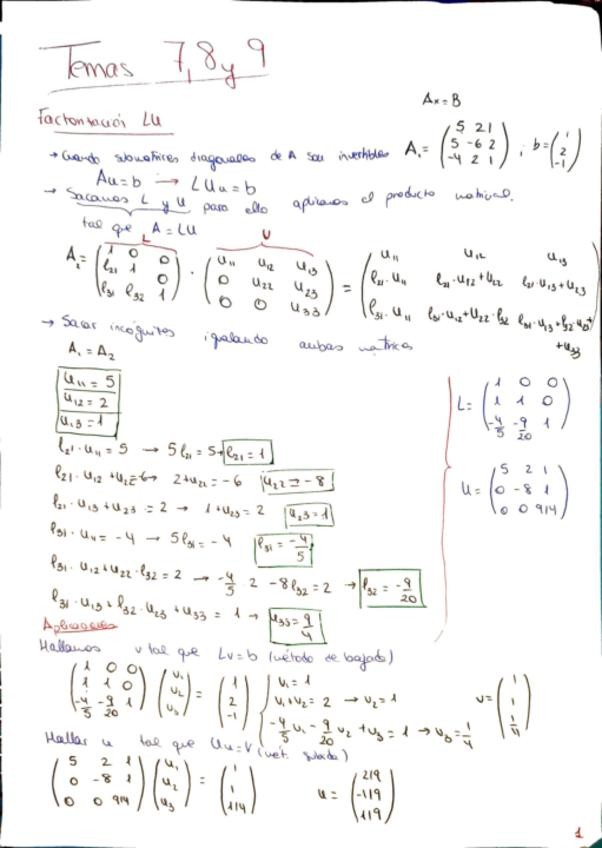 Temas 7, 8 y 9
Ax = B
Factorización LU
→ Cuando submatrices diagonales de A son invertibles A₁ = (5 2 1; 5 -6 2; -4 2 1) ; b = (1; 2; -1)
Au = b → LUu = b
→ Sacamos L y U para ello aplicamos el producto matricial.
tal que A = LU
L U
A₂ = (1 0 0; l₂₁ 1 0; l₃₁ l₃₂ 1) · (u₁₁ u₁₂ u₁₃; 0 u₂₂ u₂₃; 0 0 u₃₃) = (u₁₁ u₁₂ u₁₃; l₂₁·u₁₁ l₂₁·u₁₂+u₂₂ l₂₁·u₁₃+u₂₃; l₃₁·u₁₁ l₃₁·u₁₂+u₂₂·l₃₂ l₃₁·u₁₃+l₃₂·u₂₃+u₃₃)
→ Sacar incógnitas igualando ambas matrices
A₁ = A₂
u₁₁ = 5
u₁₂ = 2
u₁₃ = 1
l₂₁·u₁₁ = 5 → 5l₂₁ = 5 → l₂₁ = 1
l₂₁·u₁₂ + u₂₂ = -6 → 2+u₂₂ = -6 u₂₂ = -8
l₂₁·u₁₃ + u₂₃ = 2 → 1+u₂₃ = 2 u₂₃ = 1
l₃₁·u₁₁ = -4 → 5l₃₁ = -4 l₃₁ = -4/5
l₃₁·u₁₂ + u₂₂·l₃₂ = 2 → -4/5 · 2 - 8l₃₂ = 2 → l₃₂ = -9/20
l₃₁·u₁₃ + l₃₂·u₂₃ + u₃₃ = 1 → u₃₃ = 9/4
L = (1 0 0; 1 1 0; -4/5 -9/20 1)
U = (5 2 1; 0 -8 1; 0 0 9/4)
Aplicación
Hallamos v tal que Lv = b (método de bajada)
(1 0 0; 1 1 0; -4/5 -9/20 1) (v₁; v₂; v₃) = (1; 2; -1)
v₁ = 1
v₁+v₂ = 2 → v₂ = 1
-4/5 v₁ - 9/20 v₂ + v₃ = 1 → v₃ = 1/4
v = (1; 1; 1/4)
Hallar u tal que Uu = v (mét. subida)
(5 2 1; 0 -8 1; 0 0 9/4) (u₁; u₂; u₃) = (1; 1; 1/4) u = (2/9; -1/9; 1/9)
1